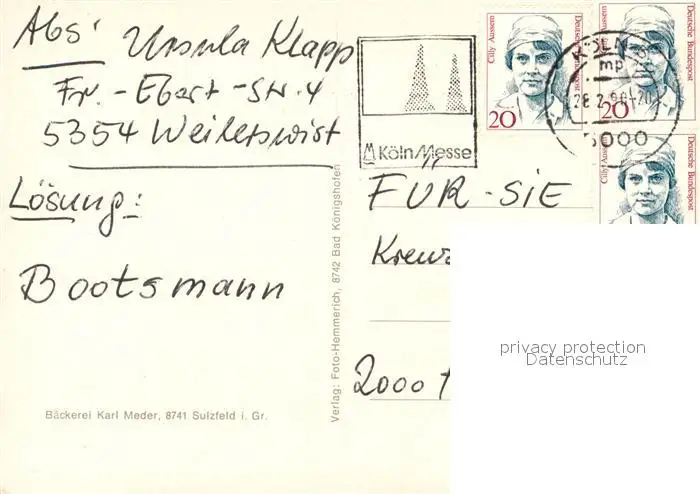 Abs'
Ursula Klapp
Fr. - Ebert - Str. 4
5354 Weilerswist
Lösung:
Bootsmann
Bäckerei Karl Meder, 8741 Sulzfeld i. Gr.
Verlag: Foto-Hemmerich, 8742 Bad Königshofen
Köln/Messe
Cilly Aussem
Deutsche Bundespost
20
Cilly Aussem
Deutsche Bundespost
20
Cilly Aussem
Deutsche Bundespost
KÖLN
mp
5000
FÜR - SIE
Kreuz
2000
privacy protection
Datenschutz